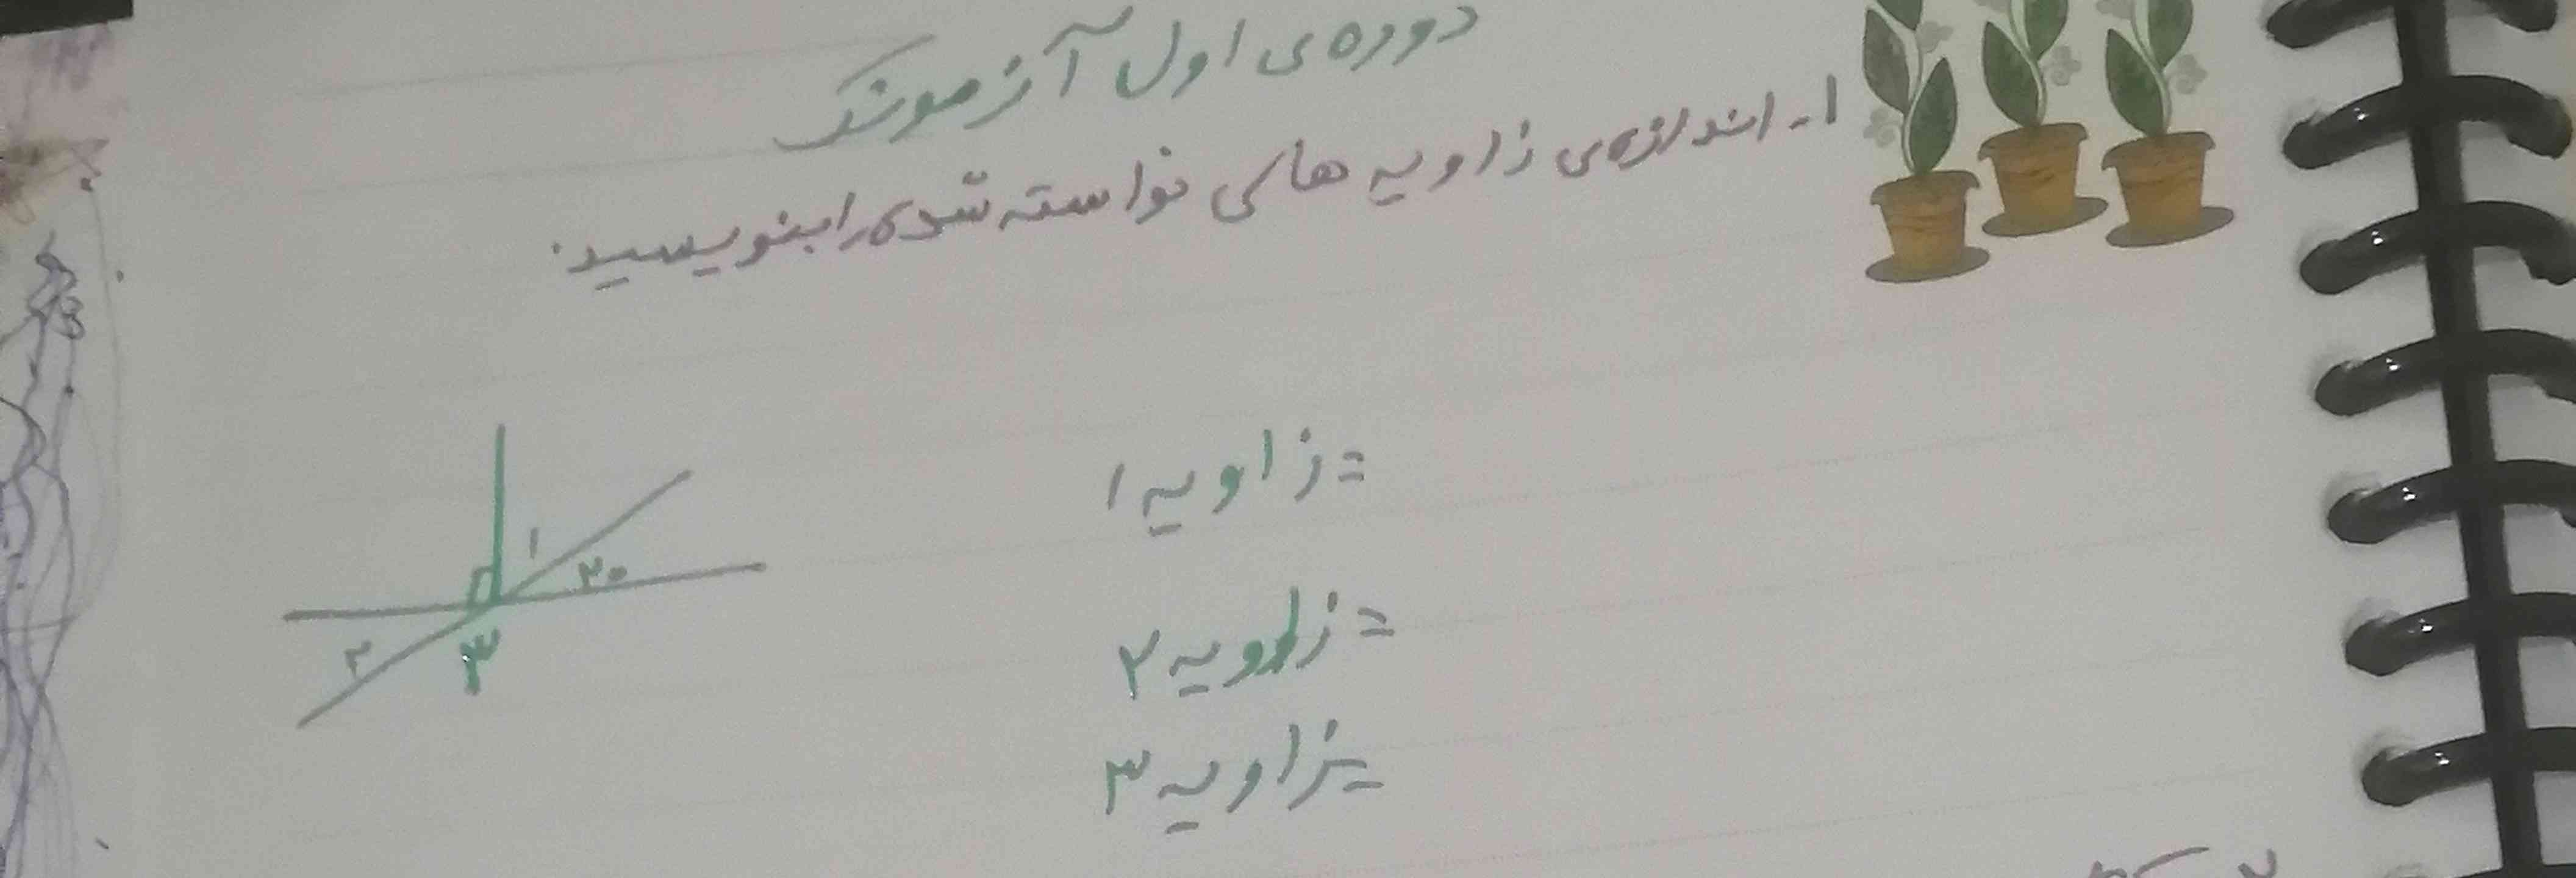 دوره‌ی اول آزمونک
۱- اندازه‌ی زاویه های خواسته شده را بنویسید.
= زاویه ۱
= زاویه ۲
= زاویه ۳
۱
۲۰
۲
۳